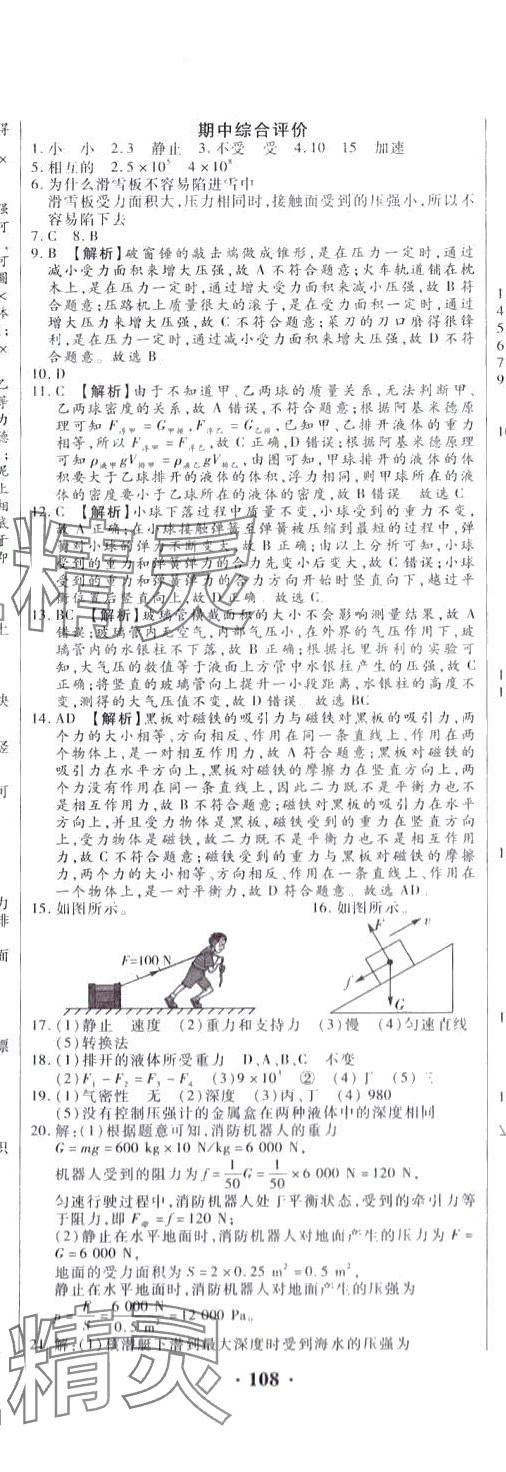 期中综合评价
1.小 小 2.3 静止 3.不受 受 4.10 15 加速
5.相互的 2.5×10⁵ 4×10⁸
6.为什么滑雪板不容易陷进雪中
滑雪板受力面积大,压力相同时,接触面受到的压强小,所以不
容易陷下去
7.C 8.B
9.B 【解析】破窗锤的敲击端做成锥形,是在压力一定时,通过
减小受力面积来增大压强,故 A 不符合题意;火车轨道铺在枕
木上,是在压力一定时,通过增大受力面积来减小压强,故 B 符
合题意;压路机上质量很大的滚子,是在受力面积一定时,通过
增大压力来增大压强,故 C 不符合题意;菜刀的刀口磨得很锋
利,是在压力一定时,通过减小受力面积来增大压强,故 D 不符
合题意。故选 B
10.D
11.C 【解析】由于不知道甲、乙两球的质量关系,无法判断甲、
乙两球密度的关系,故 A 错误,不符合题意;根据阿基米德原
理可知 F浮甲=G甲排,F浮乙=G乙排,已知甲、乙排开液体的重力
相等,所以 F浮甲=F浮乙,故 C 正确,D 错误;根据阿基米德原理
可知 ρ液甲gV排甲=ρ液乙gV排乙,由图可知,甲球排开的液体的体
积要大于乙球排开的液体的体积,浮力相同,则甲球所在的液
体的密度小于乙球所在的液体的密度,故 B 错误 故选 C
12.C 【解析】小球下落过程中质量不变,小球受到的重力不变,
故 A 正确;在小球接触弹簧至弹簧被压缩到最短的过程中,弹
簧对小球的弹力不断变大,故 B 正确;由以上分析可知,小球
受到的重力和弹簧弹力的合力先变小后变大,故 C 错误;小球
受到的重力和弹簧弹力的合力方向开始时竖直向下,越过平
衡位置后竖直向上,故 D 正确。故选 C
13.BC 【解析】玻璃管横截面积的大小不会影响测量结果,故 A
错误;玻璃管内无空气,内部气压小,在外界的气压作用下,玻
璃管内的水银柱不下落,故 B 正确;根据托里拆利的实验可
知,大气压的数值等于液面上方管中水银柱产生的压强,故 C
正确;将竖直的玻璃管向上提升一小段距离,水银柱的高度不
变,测得的大气压值不变,故 D 错误。故选 BC
14.AD 【解析】黑板对磁铁的吸引力与磁铁对黑板的吸引力,两
个力的大小相等、方向相反、作用在同一条直线上、作用在两
个物体上,是一对相互作用力,故 A 符合题意;黑板对磁铁的
吸引力在水平方向上,黑板对磁铁的摩擦力在竖直方向上,两
个力没有作用在同一条直线上,因此二力既不是平衡力也不
是相互作用力,故 B 不符合题意;磁铁对黑板的吸引力在水平
方向上,并且受力物体是黑板,磁铁受到的重力在竖直方向
上,受力物体是磁铁,故二力既不是平衡力也不是相互作用
力,故 C 不符合题意;磁铁受到的重力与黑板对磁铁的摩擦
力,两个力的大小相等、方向相反、作用在一条直线上、作用在
一个物体上,是一对平衡力,故 D 符合题意。故选 AD
15.如图所示。 16.如图所示。
F=100 N
F
v
f
G
17.(1)静止 速度 (2)重力和支持力 (3)慢 (4)匀速直线
(5)转换法
18.(1)排开的液体所受重力 D、A、B、C 不变
(2)F₁-F₂=F₃ (3)9×10⁴ ② (4)丁 (5)三
19.(1)气密性 无 (2)深度 (3)丙、丁 (4)980
(5)没有控制压强计的金属盒在两种液体中的深度相同
20.解:(1)根据题意可知,消防机器人的重力
G=mg=600 kg×10 N/kg=6 000 N,
机器人受到的阻力为 f=1/50 G=1/50×6 000 N=120 N,
匀速行驶过程中,消防机器人处于平衡状态,受到的牵引力等
于阻力,即 F牵=f=120 N;
(2)静止在水平地面时,消防机器人对地面产生的压力为 F=
G=6 000 N,
地面的受力面积为 S=2×0.25 m²=0.5 m²,
静止在水平地面时,消防机器人对地面产生的压强为
p=F/S=6 000 N/0.5 m²=12 000 Pa。
21.解:(1)核潜艇下潜到最大深度时受到海水的压强为
· 108 ·
精灵
精灵